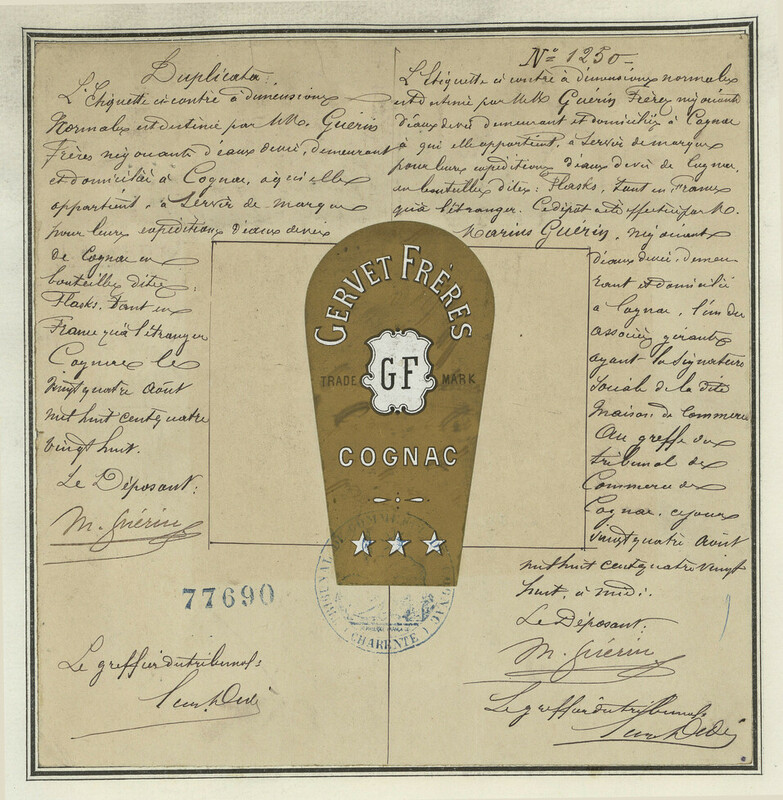 Duplicata.
L'Etiquette ci contre à dimensions
Normales est destinée par MM. Guérin
Frères négociants d'eaux devie, demeurant
et domiciliés à Cognac, à qui elle
appartient, à servir de marque
pour leurs expéditions d'eaux devie
de Cognac en
bouteilles dites:
Flasks, tant en
France qu'à l'étranger
Cognac le
vingt quatre Août
mil huit cent quatre
vingt huit.
Le Déposant:
M. Guérin
77690
Le greffier du tribunal:
No 1250
L'Etiquette ci contre à dimensions normales
est destinée par MM. Guérin Frères négociants
d'eaux devie demeurant et domiciliés à Cognac
à qui elle appartient, à servir de marque
pour leurs expéditions d'eaux devie de Cognac,
en bouteilles dites: Flasks, tant en France
qu'à l'étranger. Ce dépôt a été effectué par M.
Marius Guérin, négociant
d'eaux devie, demeu
rant et domicilié
à Cognac, l'un des
associés gérants
ayant la signature
sociale de la dite
Maison de Commerce
Au greffe du
tribunal de
Commerce de
Cognac, ce jour
vingt quatre Août
mil huit cent quatre vingt
huit, à midi.
Le Déposant.
M. Guérin
Le greffier du tribunal
GERVET FRÈRES
TRADE GF MARK
COGNAC
CHARENTE